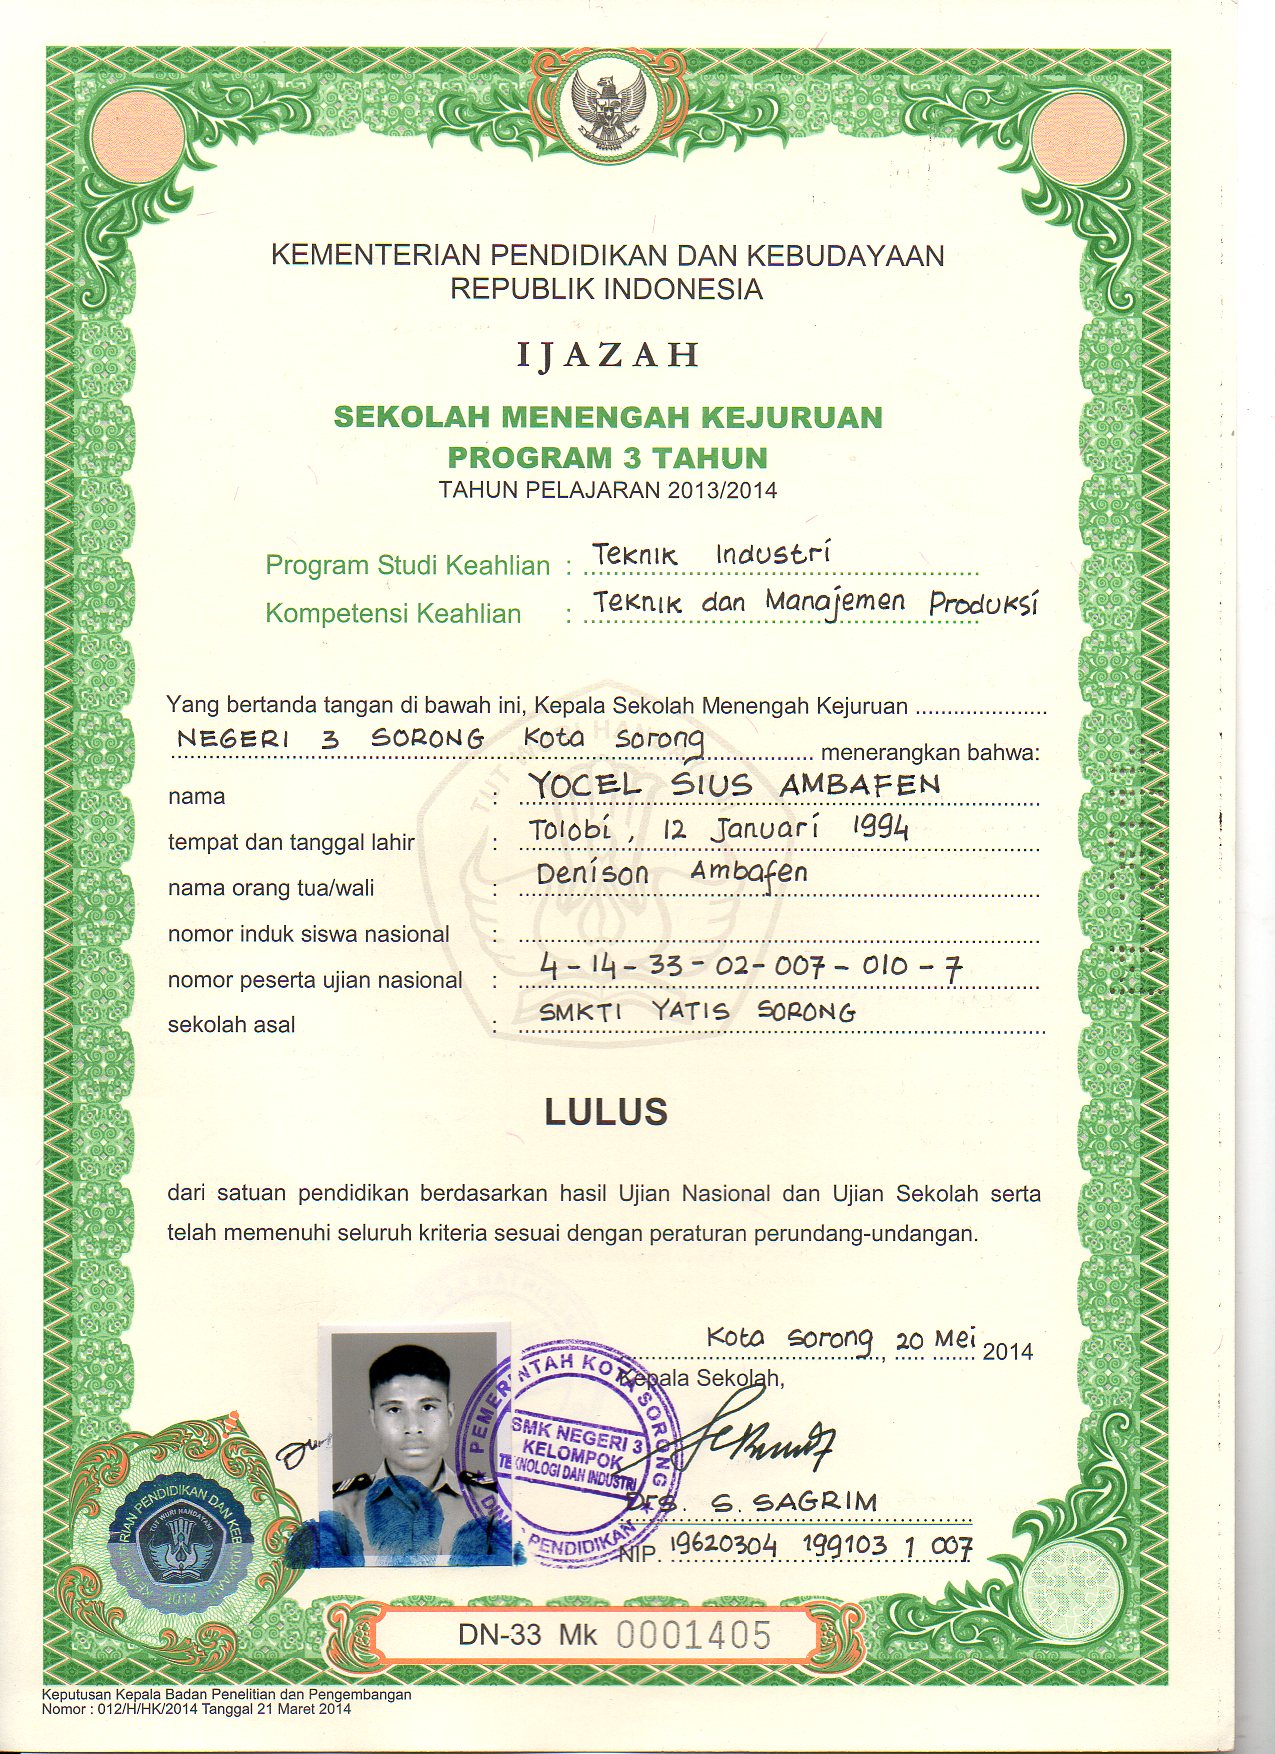 KEMENTERIAN PENDIDIKAN DAN KEBUDAYAAN
REPUBLIK INDONESIA
IJAZAH
SEKOLAH MENENGAH KEJURUAN
PROGRAM 3 TAHUN
TAHUN PELAJARAN 2013/2014
Program Studi Keahlian : Teknik Industri
Kompetensi Keahlian : Teknik dan Manajemen Produksi
Yang bertanda tangan di bawah ini, Kepala Sekolah Menengah Kejuruan
NEGERI 3 SORONG Kota Sorong menerangkan bahwa:
nama : YOCEL SIUS AMBAFEN
tempat dan tanggal lahir : Tolobi, 12 Januari 1994
nama orang tua/wali : Denison Ambafen
nomor induk siswa nasional :
nomor peserta ujian nasional : 4-14-33-02-007-010-7
sekolah asal : SMKTI YATIS SORONG
LULUS
dari satuan pendidikan berdasarkan hasil Ujian Nasional dan Ujian Sekolah serta
telah memenuhi seluruh kriteria sesuai dengan peraturan perundang-undangan.
Kota Sorong, 20 Mei 2014
Kepala Sekolah,
PEMERINTAH KOTA SORONG
SMK NEGERI 3
KELOMPOK
TEKNOLOGI DAN INDUSTRI
PENDIDIKAN
Drs. S. SAGRIM
NIP. 19620304 199103 1 007
TUT WURI HANDAYANI
2014
DN-33 Mk 0001405
Keputusan Kepala Badan Penelitian dan Pengembangan
Nomor : 012/H/HK/2014 Tanggal 21 Maret 2014